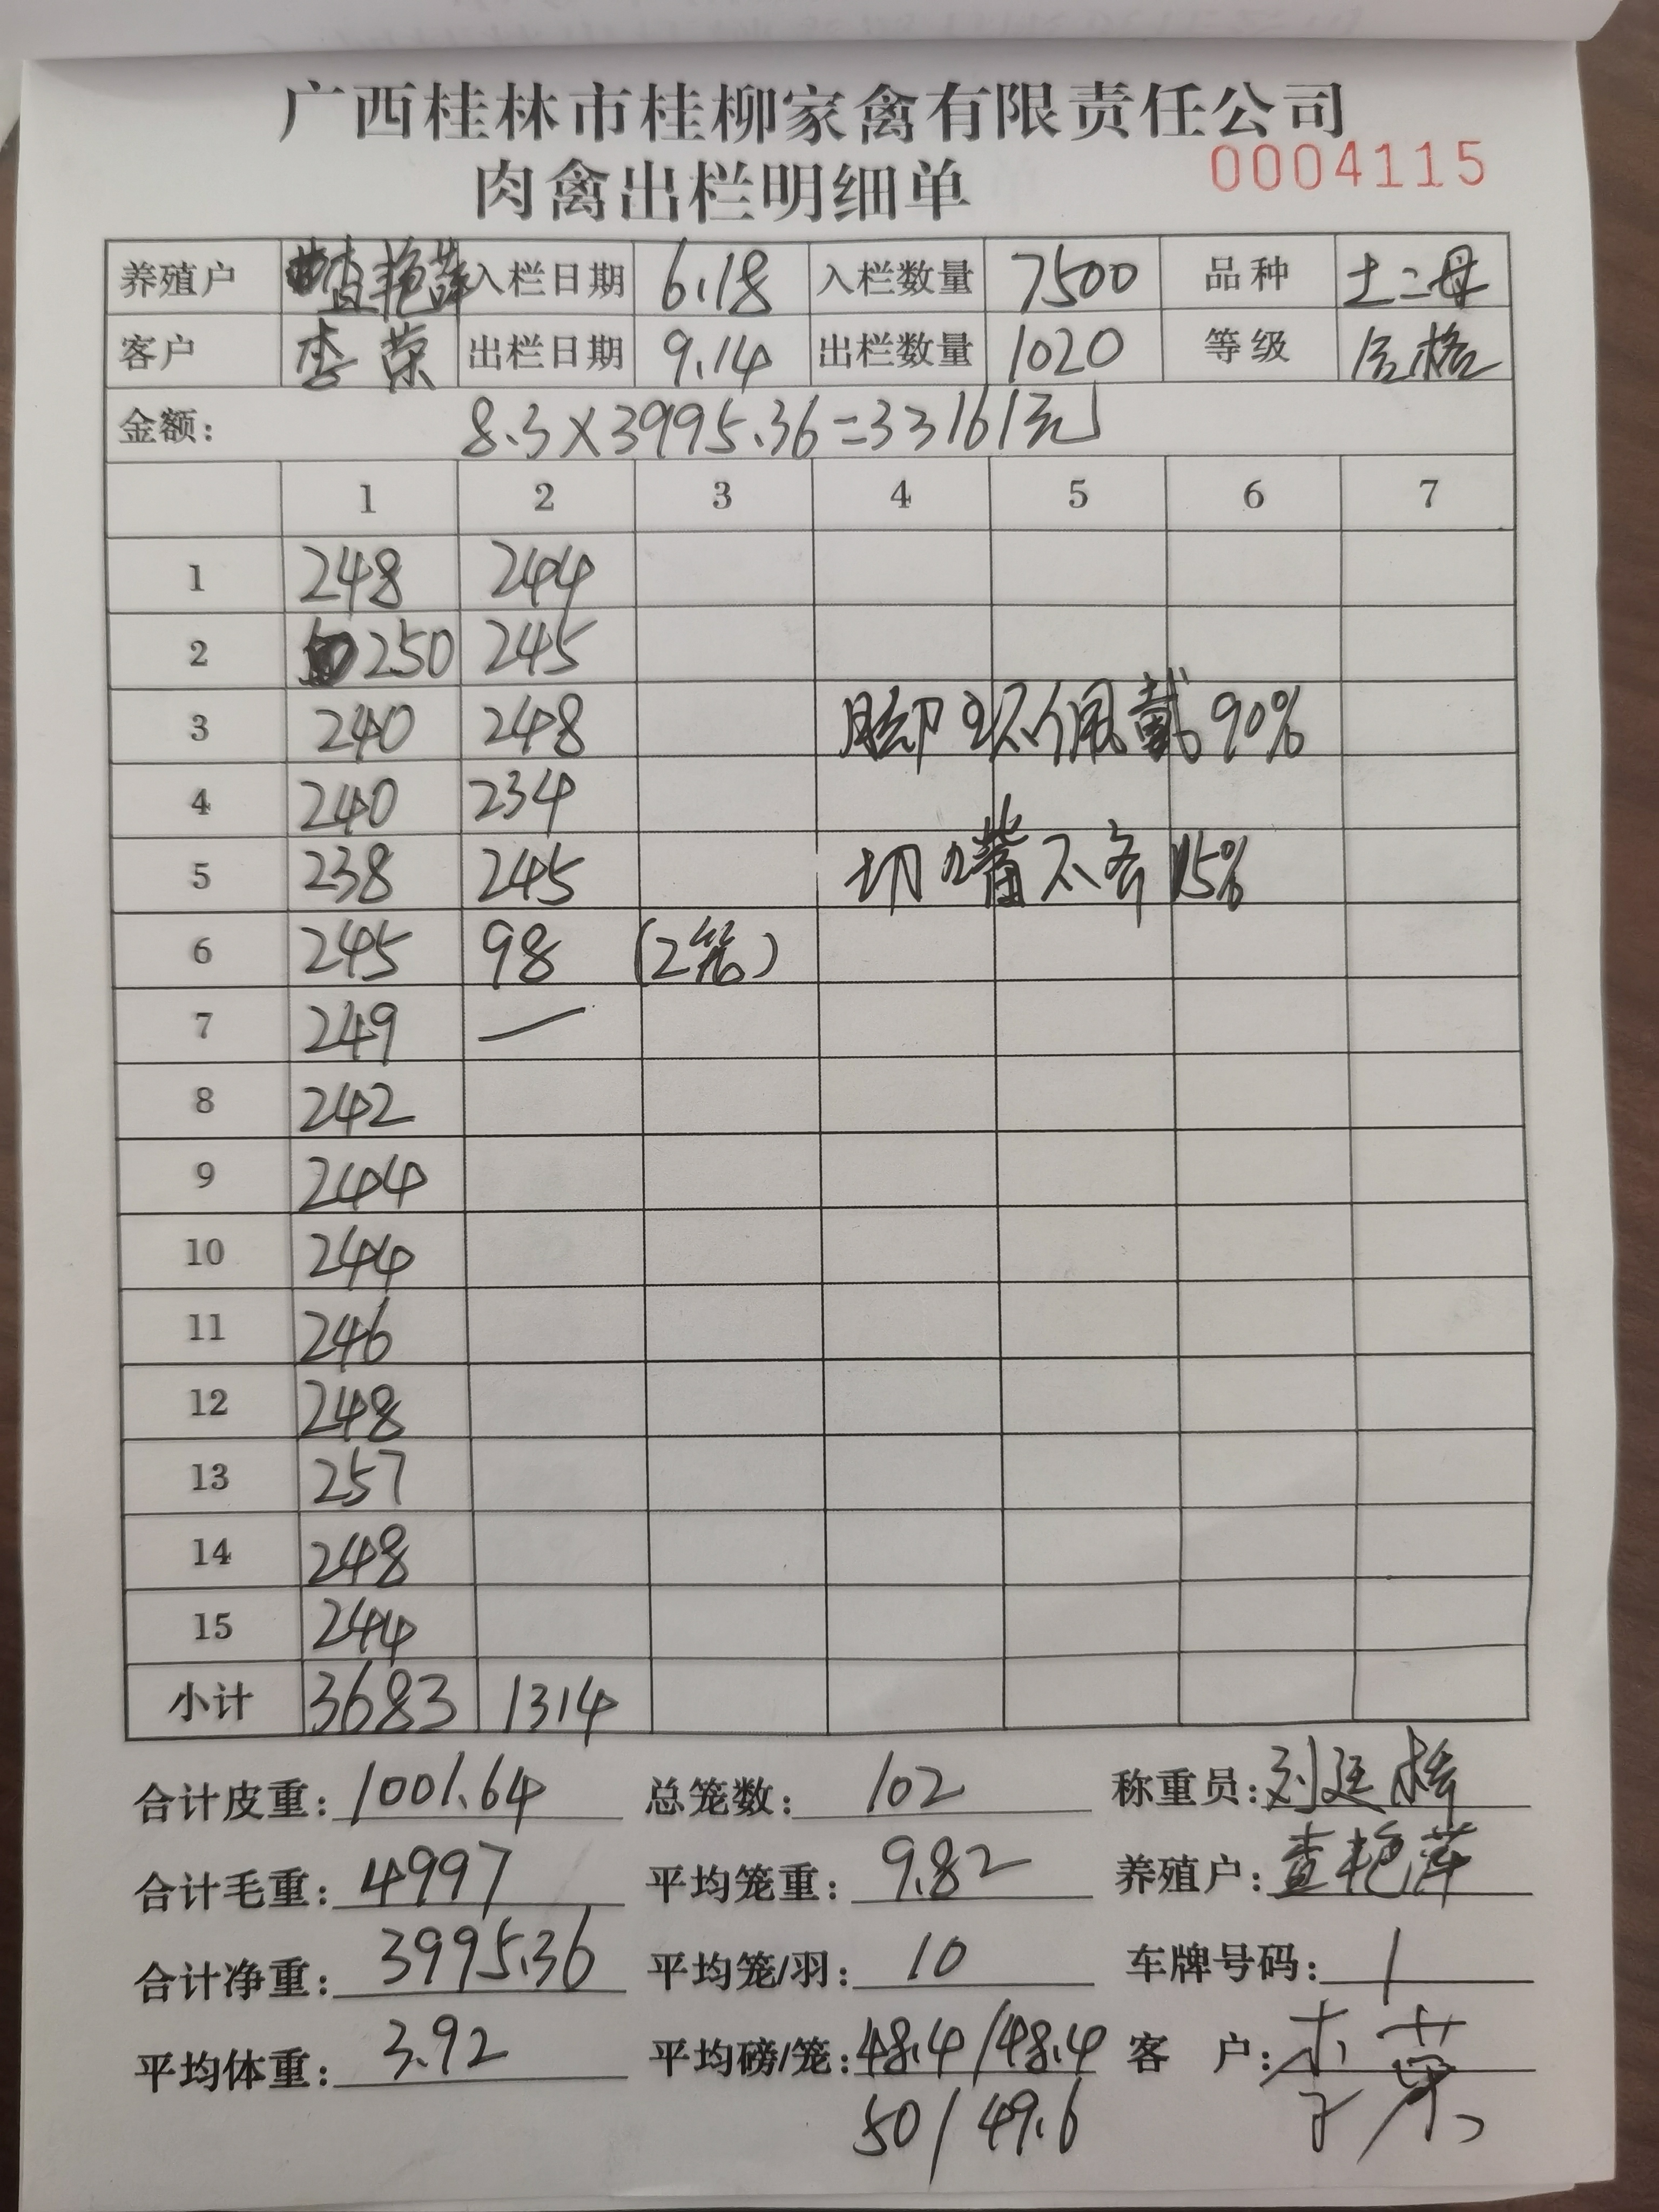 广西桂林市桂柳家禽有限责任公司
肉禽出栏明细单 0004115
养殖户 查艳萍 入栏日期 6.18 入栏数量 7500 品种 土二母
客户 李荣 出栏日期 9.14 出栏数量 1020 等级 合格
金额: 8.3×3995.36=33161元
1 2 3 4 5 6 7
1 248 244
2 250 245
3 240 248 脚环佩戴90%
4 240 234
5 238 245 切嘴不齐15%
6 245 98 (2笼)
7 249 —
8 242
9 244
10 244
11 246
12 248
13 257
14 248
15 244
小计 3683 1314
合计皮重: 1001.64 总笼数: 102 称重员: 刘廷
合计毛重: 4997 平均笼重: 9.82 养殖户: 查艳萍
合计净重: 3995.36 平均笼/羽: 10 车牌号码: /
平均体重: 3.92 平均磅/笼: 48.4/48.4 客户: 李荣
50/49.6